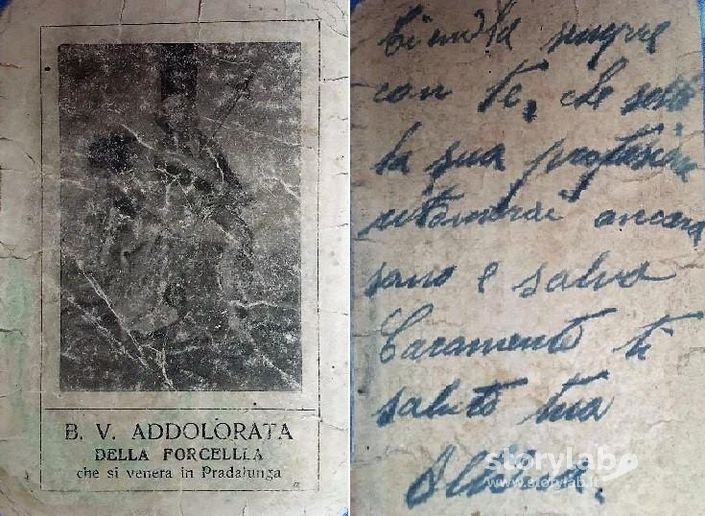 B. V. ADDOLORATA
DELLA FORCELLLA
che si venera in Pradalunga
sempre
con te, che sotto
la sua protesione
ritornerai ancora
sano e salvo
Caramente ti
saluto tua
storylab
www.storylab.it